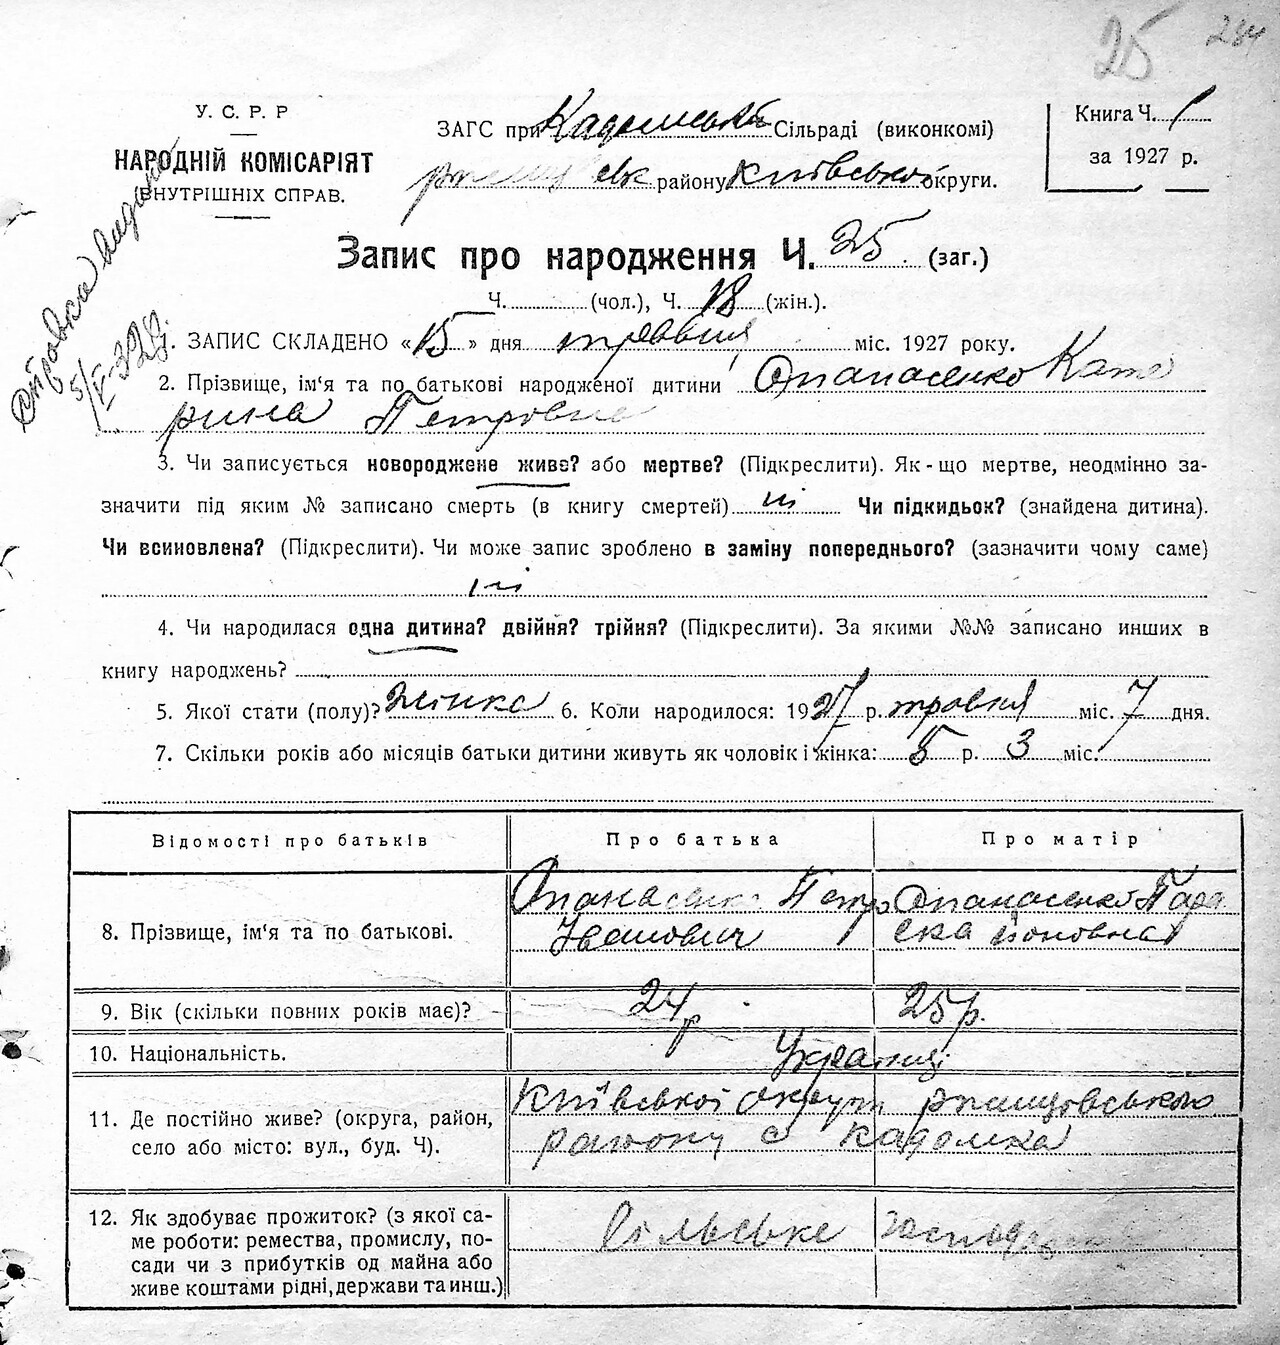 25 284
У. С. Р. Р
НАРОДНІЙ КОМІСАРІЯТ
ВНУТРІШНІХ СПРАВ.
ЗАГС при Кадомській Сільраді (виконкомі)
району Київської округи.
Книга Ч. 1
за 1927 р.
Запис про народження Ч. 25. (заг.)
Ч. (чол.), Ч. 18 (жін.).
1. ЗАПИС СКЛАДЕНО «15» дня травня міс. 1927 року.
2. Прізвище, ім'я та по батькові народженої дитини Опанасенко Кате
рина Петровна
3. Чи записується новороджене живе? або мертве? (Підкреслити). Як-що мертве, неодмінно за-
значити під яким № записано смерть (в книгу смертей) ні Чи підкидьок? (знайдена дитина).
Чи всиновлена? (Підкреслити). Чи може запис зроблено в заміну попереднього? (зазначити чому саме)
ні
4. Чи народилася одна дитина? двійня? трійня? (Підкреслити). За якими №№ записано инших в
книгу народжень?
5. Якої стати (полу)? жінка 6. Коли народилося: 1927 р. травня міс. 7 дня.
7. Скільки років або місяців батьки дитини живуть як чоловік і жінка: 5 р. 3 міс.
Відомості про батьків Про батька Про матір
8. Прізвище, ім'я та по батькові.
Опанасенко Петро Опанасенко Пара
Іванович ска
9. Вік (скільки повних років має)? 24 р 25 р.
10. Національність. Українці
11. Де постійно живе? (округа, район,
село або місто: вул., буд. Ч).
Київської округи ржищівського
району с Кадомка
12. Як здобуває прожиток? (з якої са-
ме роботи: ремества, промислу, по-
сади чи з прибутків од майна або
живе коштами рідні, держави та инш.)
сільське